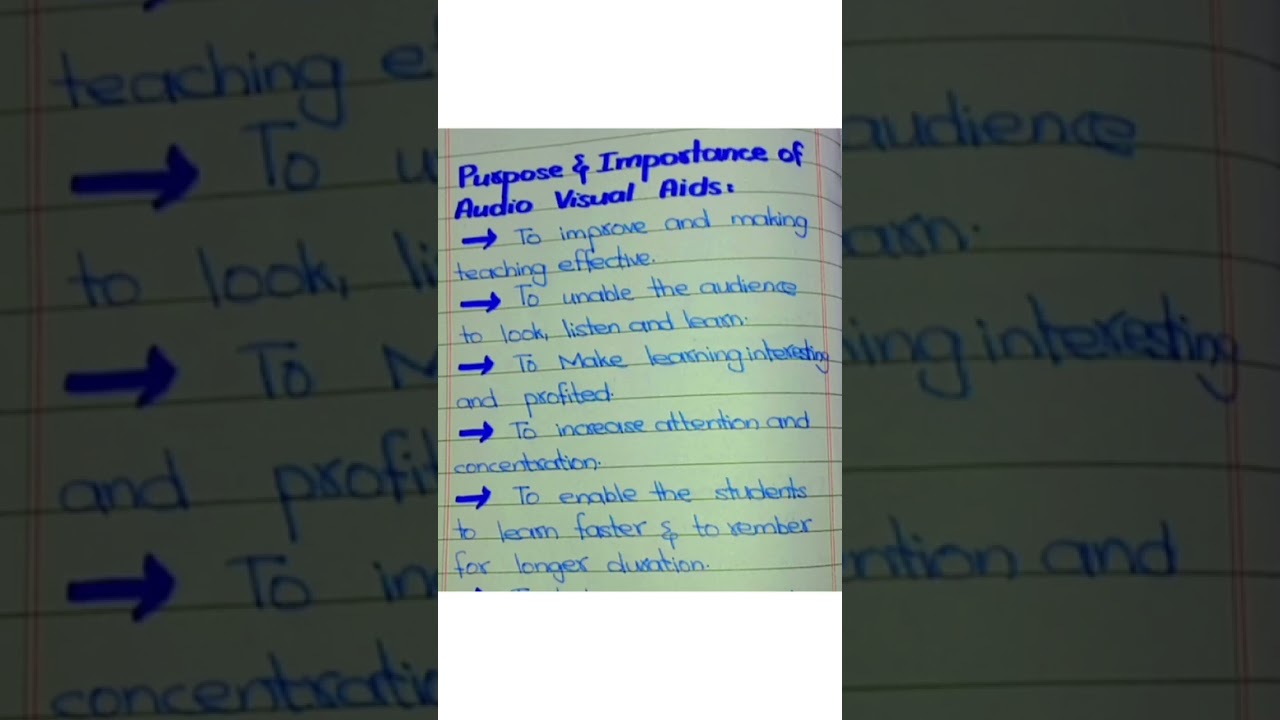 Purpose & Importance of
Audio Visual Aids:
→ To improve and making
teaching effective.
→ To unable the audience
to look, listen and learn.
→ To Make learning interesting
and profited.
→ To increase attention and
concentration.
→ To enable the students
to learn faster & to rember
for longer duration.